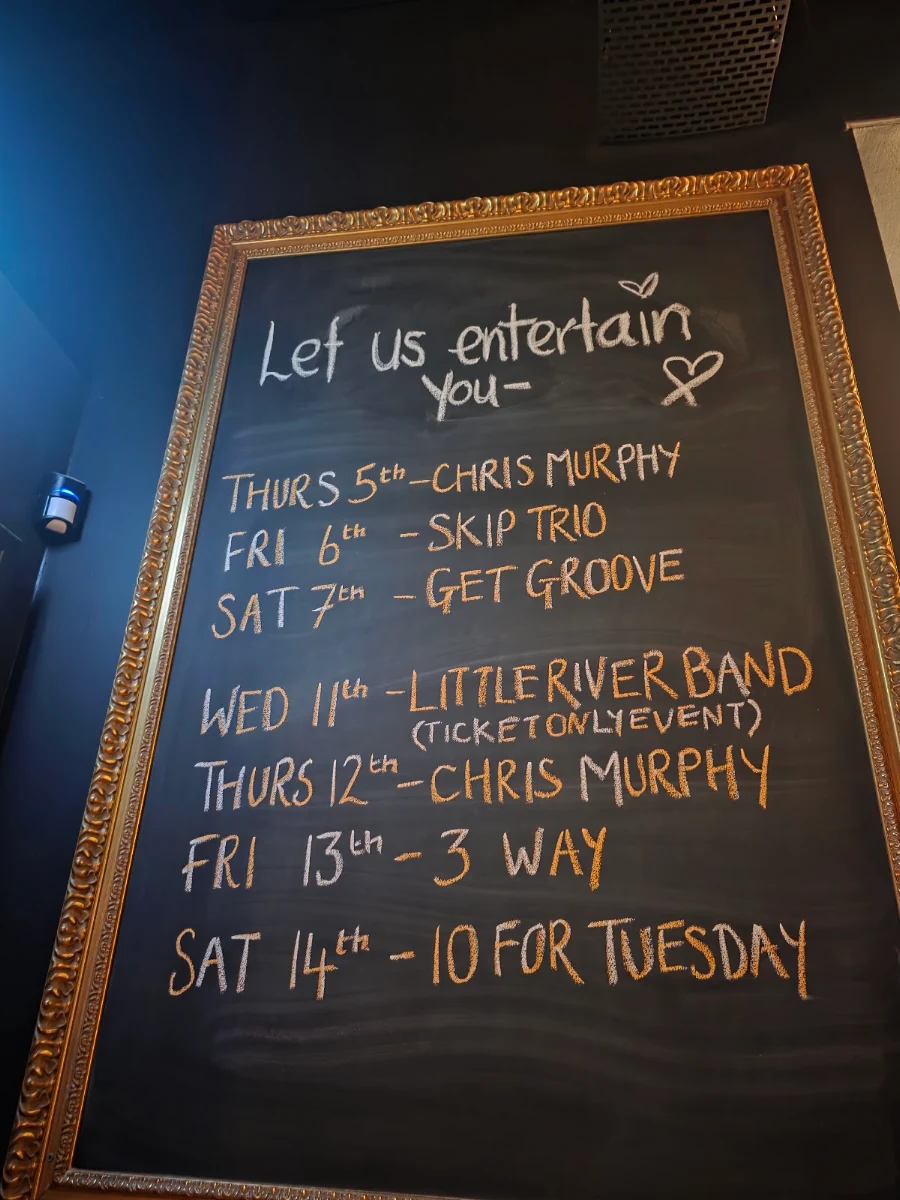 Let us entertain
you-
THURS 5th - CHRIS MURPHY
FRI 6th - SKIP TRIO
SAT 7th - GET GROOVE
WED 11th - LITTLE RIVER BAND
(TICKET ONLY EVENT)
THURS 12th - CHRIS MURPHY
FRI 13th - 3 WAY
SAT 14th - 10 FOR TUESDAY